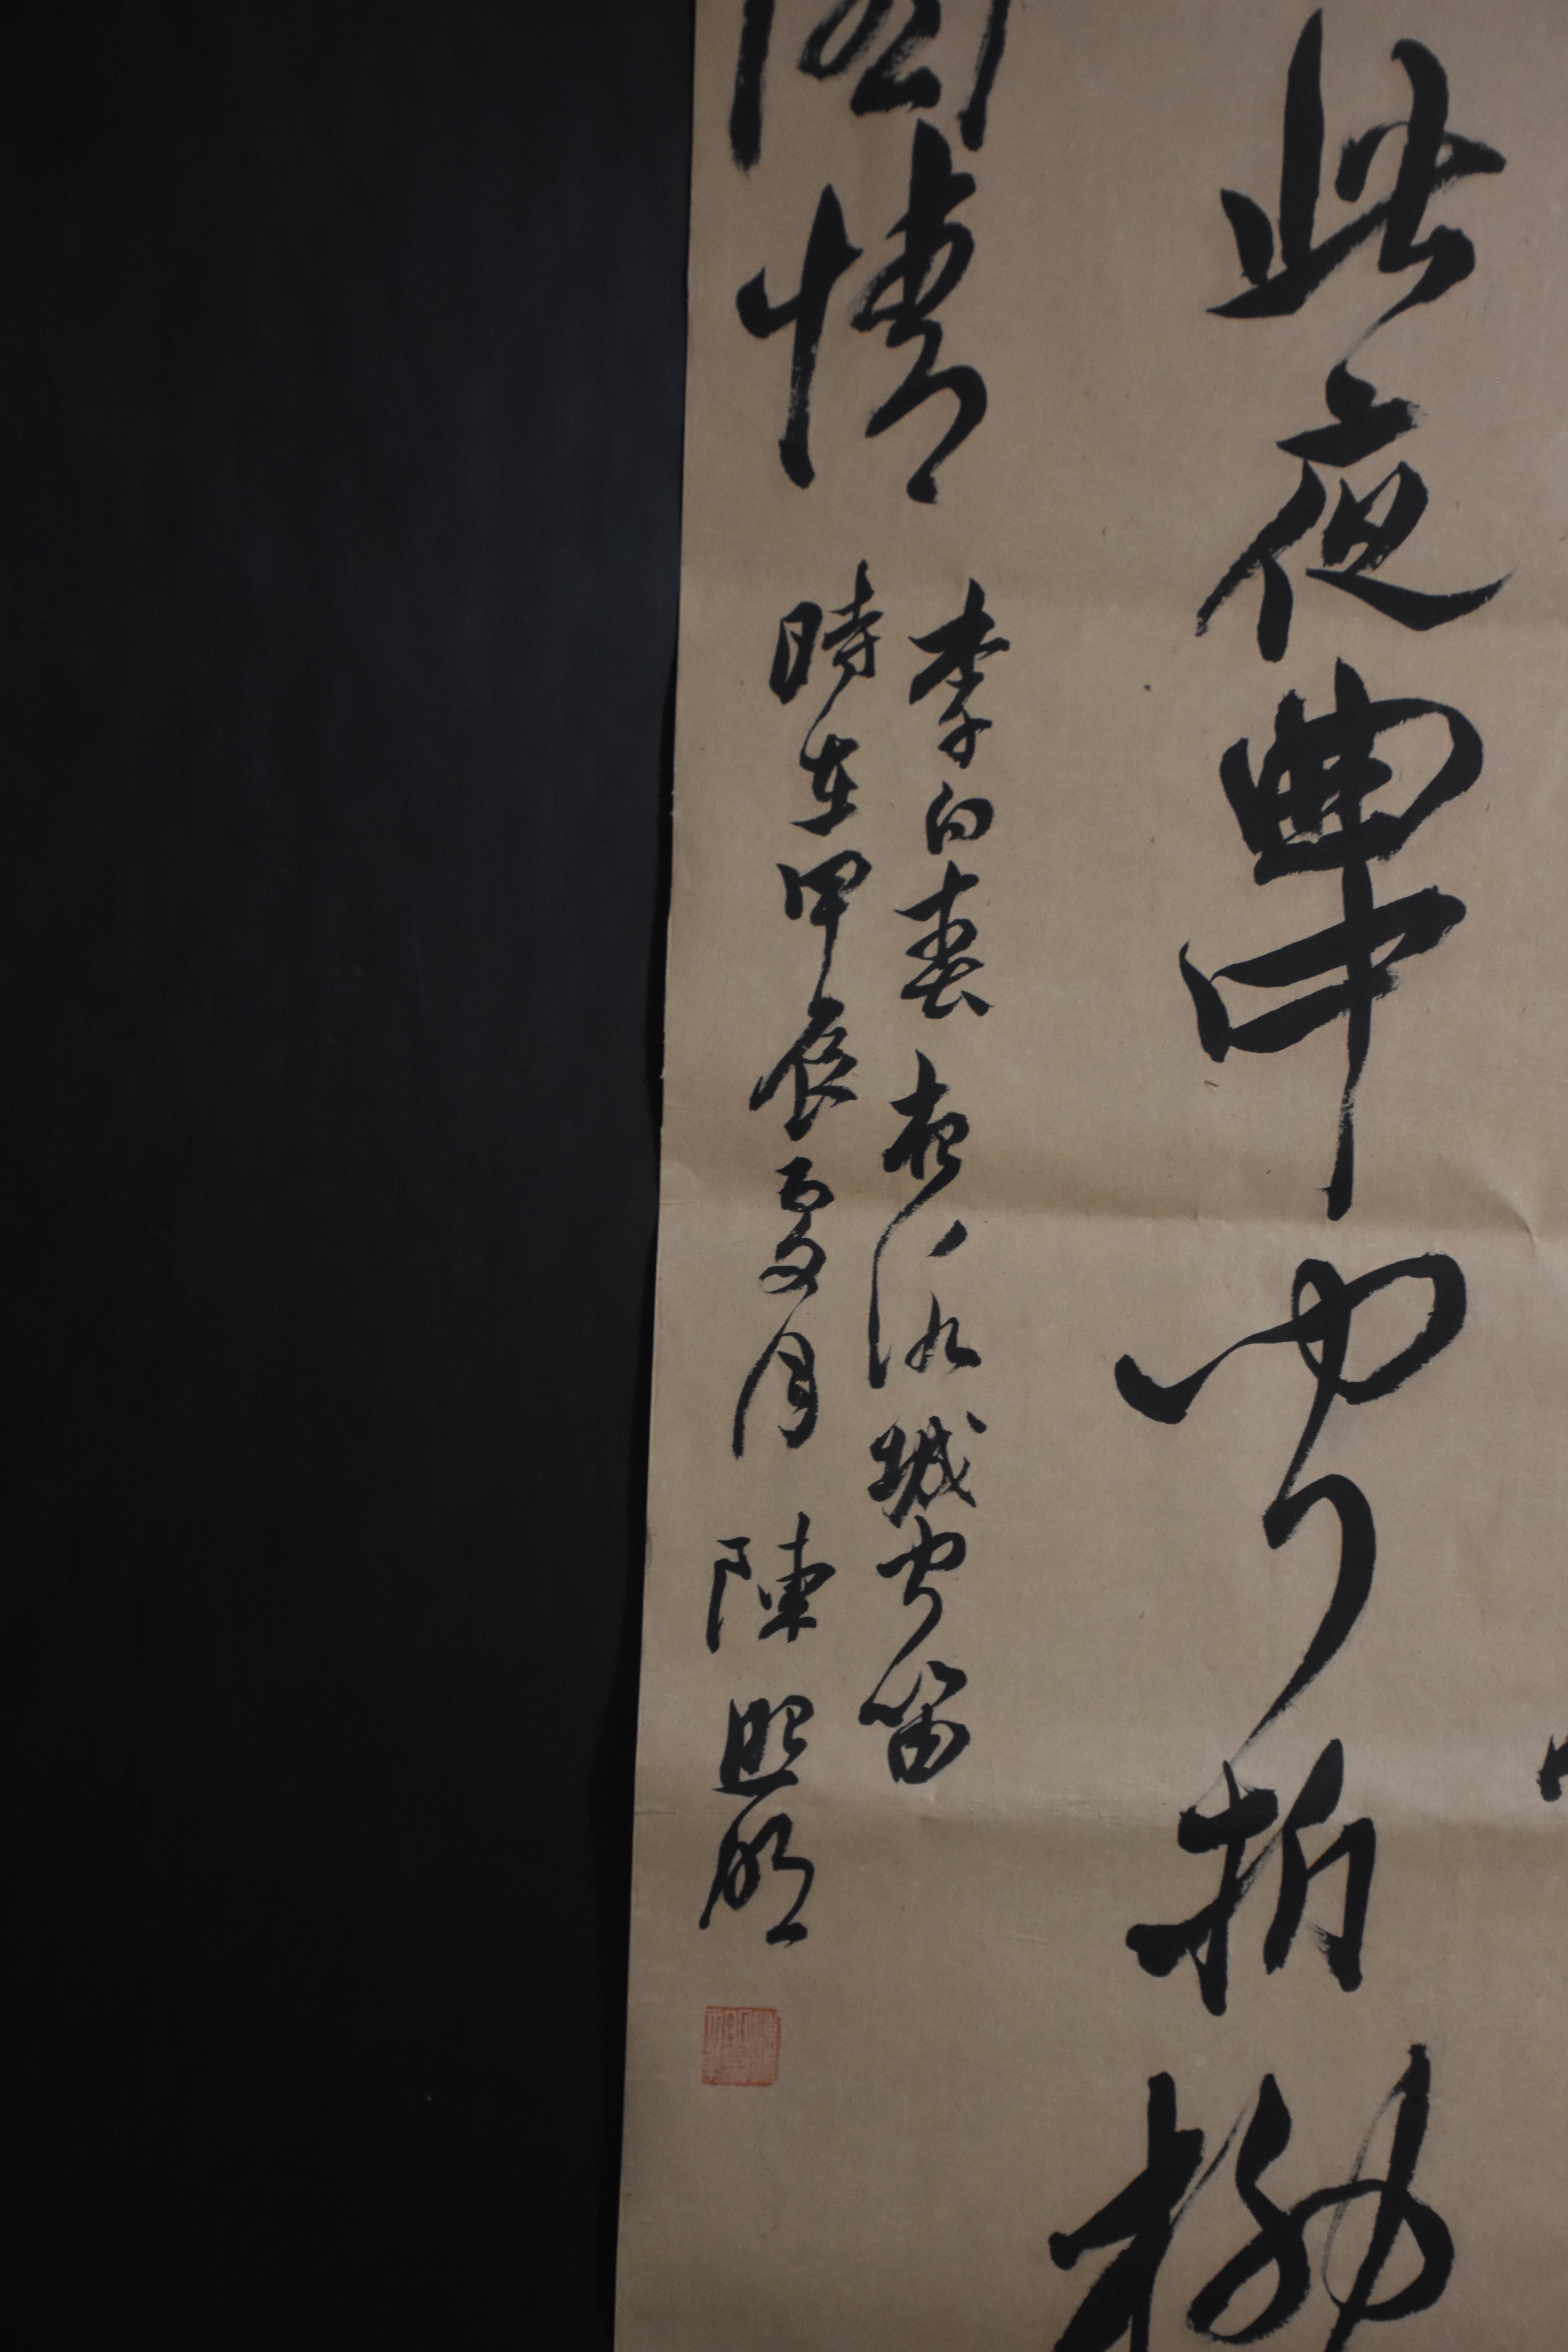 此夜曲中聞折柳
園情
李白春夜洛城聞笛
時在甲辰夏月 陳照明